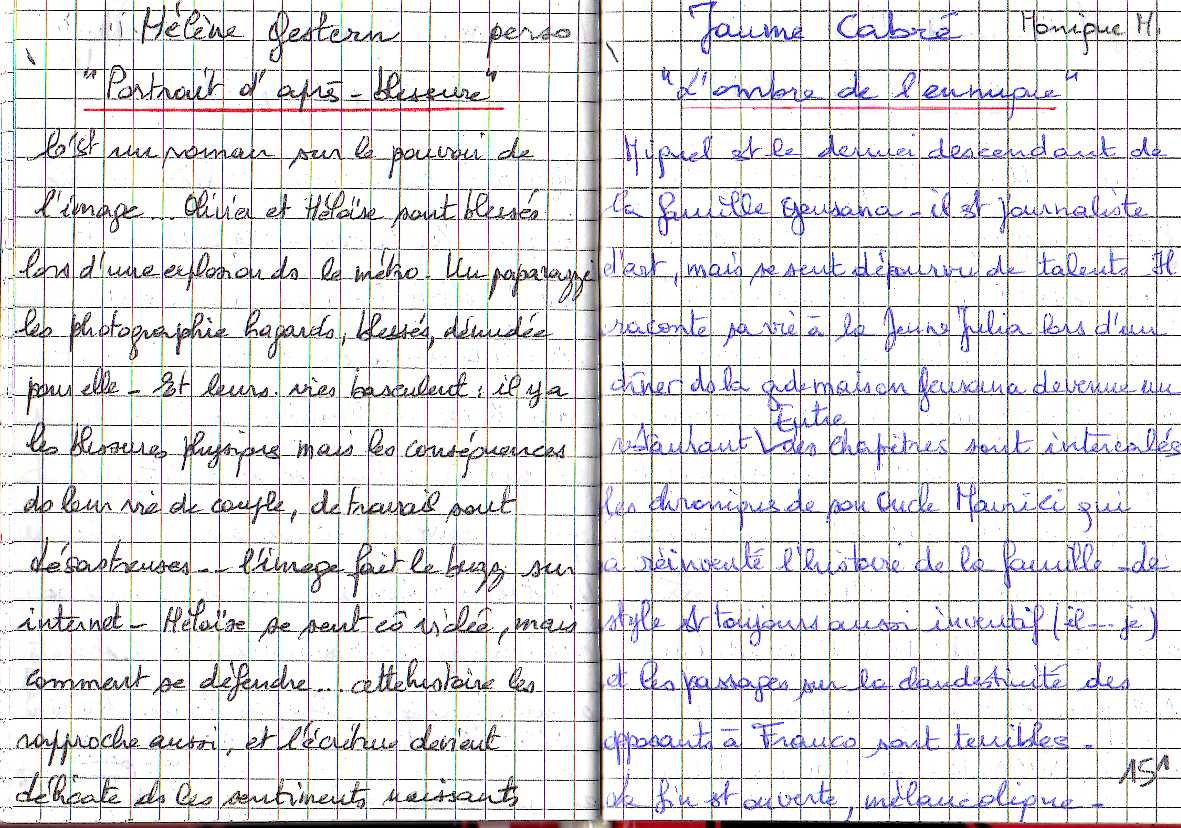 Hélène Gestern perso
"Portrait d'après-blessure"
C'est un roman sur le pouvoir de
l'image... Olivier et Héloïse sont blessés
lors d'une explosion ds le métro. Un paparazzi
les photographie hagards, blessés, dénudée
pour elle - Et leurs vies basculent : il y a
les blessures physiques mais les conséquences
ds leur vie de couple, de travail sont
désastreuses -- l'image fait le buzz sur
internet - Héloïse se sent co vidée, mais
comment se défendre... cette histoire les
rapproche aussi, et l'écriture devient
délicate ds les sentiments naissants
Jaume Cabré Monique M.
"L'ombre de l'eunuque"
Miquel est le dernier descendant de
la famille Gensana - il est journaliste
d'art, mais se sent dépourvu de talents Il
raconte sa vie à la jeune Julia lors d'un
dîner ds la gde maison Gensana devenue un
restaurant Entre des chapitres sont intercalés
les chroniques de son Oncle Maurici qui
a réinventé l'histoire de la famille - de
style est toujours aussi inventif (il -- je)
et les passages sur la clandestinité des
opposants à Franco sont terribles -
La fin est ouverte, mélancolique -
151